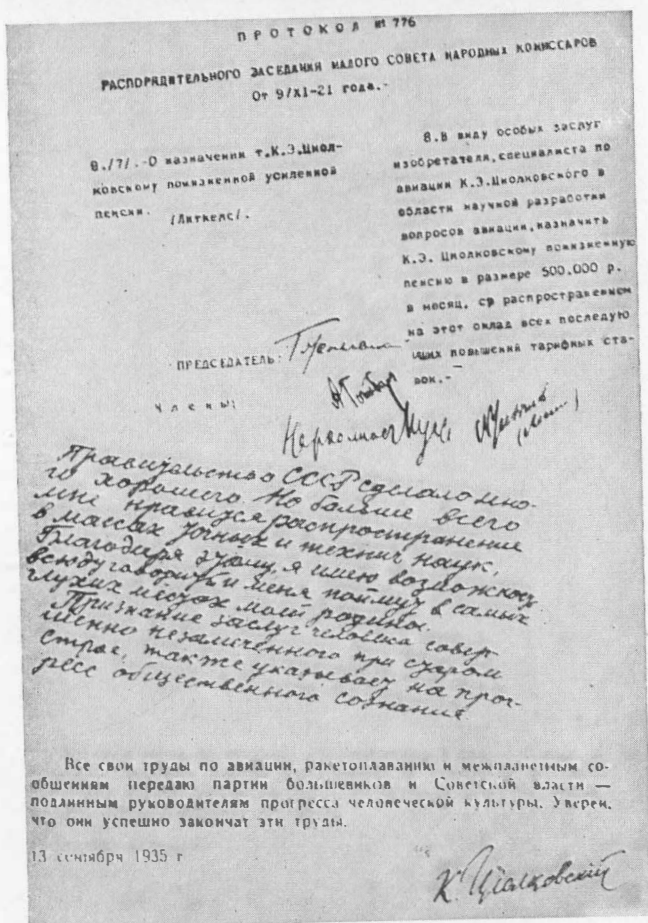 ПРОТОКОЛ № 776
РАСПОРЯДИТЕЛЬНОГО ЗАСЕДАНИЯ МАЛОГО СОВЕТА НАРОДНЫХ КОМИССАРОВ
От 9/XI-21 года.-
8./7/.-О назначении т.К.Э.Циол-
ковскому пожизненной усиленной
пенсии.
/Литкенс/.
8.В виду особых заслуг
изобретателя, специалиста по
авиации К.Э.Циолковского в
области научной разработки
вопросов авиации, назначить
К.Э. Циолковскому пожизненную
пенсию в размере 500.000 р.
в месяц, с распространением
на этот оклад всех последую
щих повышений тарифных ста-
вок.-
ПРЕДСЕДАТЕЛЬ:
Члены:
Правительство СССР сделало мно-
го хорошего. Но больше всего
мне нравится распространение
в массах точных и технич наук.
Благодаря этому, я имею возможность
всюду говорить и меня поймут в самых
глухих местах моей родины.
Признание заслуг человека совер-
шенно незамеченного при старом
строе, также указывает на прог-
ресс общественного сознания
Все свои труды по авиации, ракетоплаванию и межпланетным со-
общениям передаю партии большевиков и Советской власти —
подлинным руководителям прогресса человеческой культуры. Уверен,
что они успешно закончат эти труды.
13 сентября 1935 г
К. Циолковский